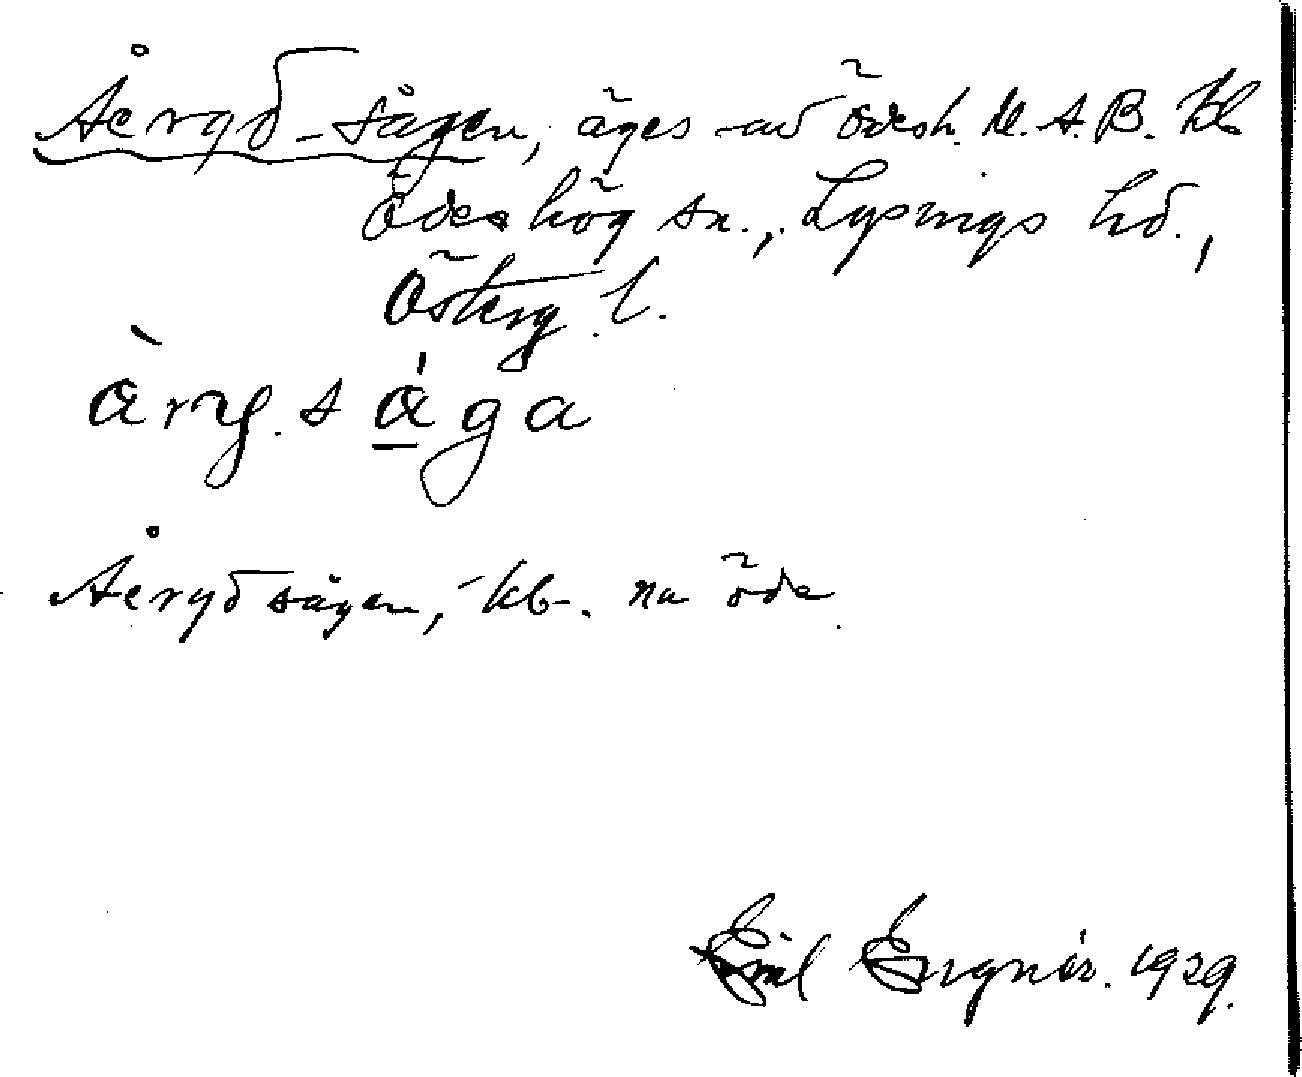 Åeryd-sågen, äges av Ödesh. M. A. B. kb
Ödeshög sn., Lysings hd.,
Österg. l.
åryssåga
Åerydsågen, - kb-. na öde
Emil Engnér. 1929.